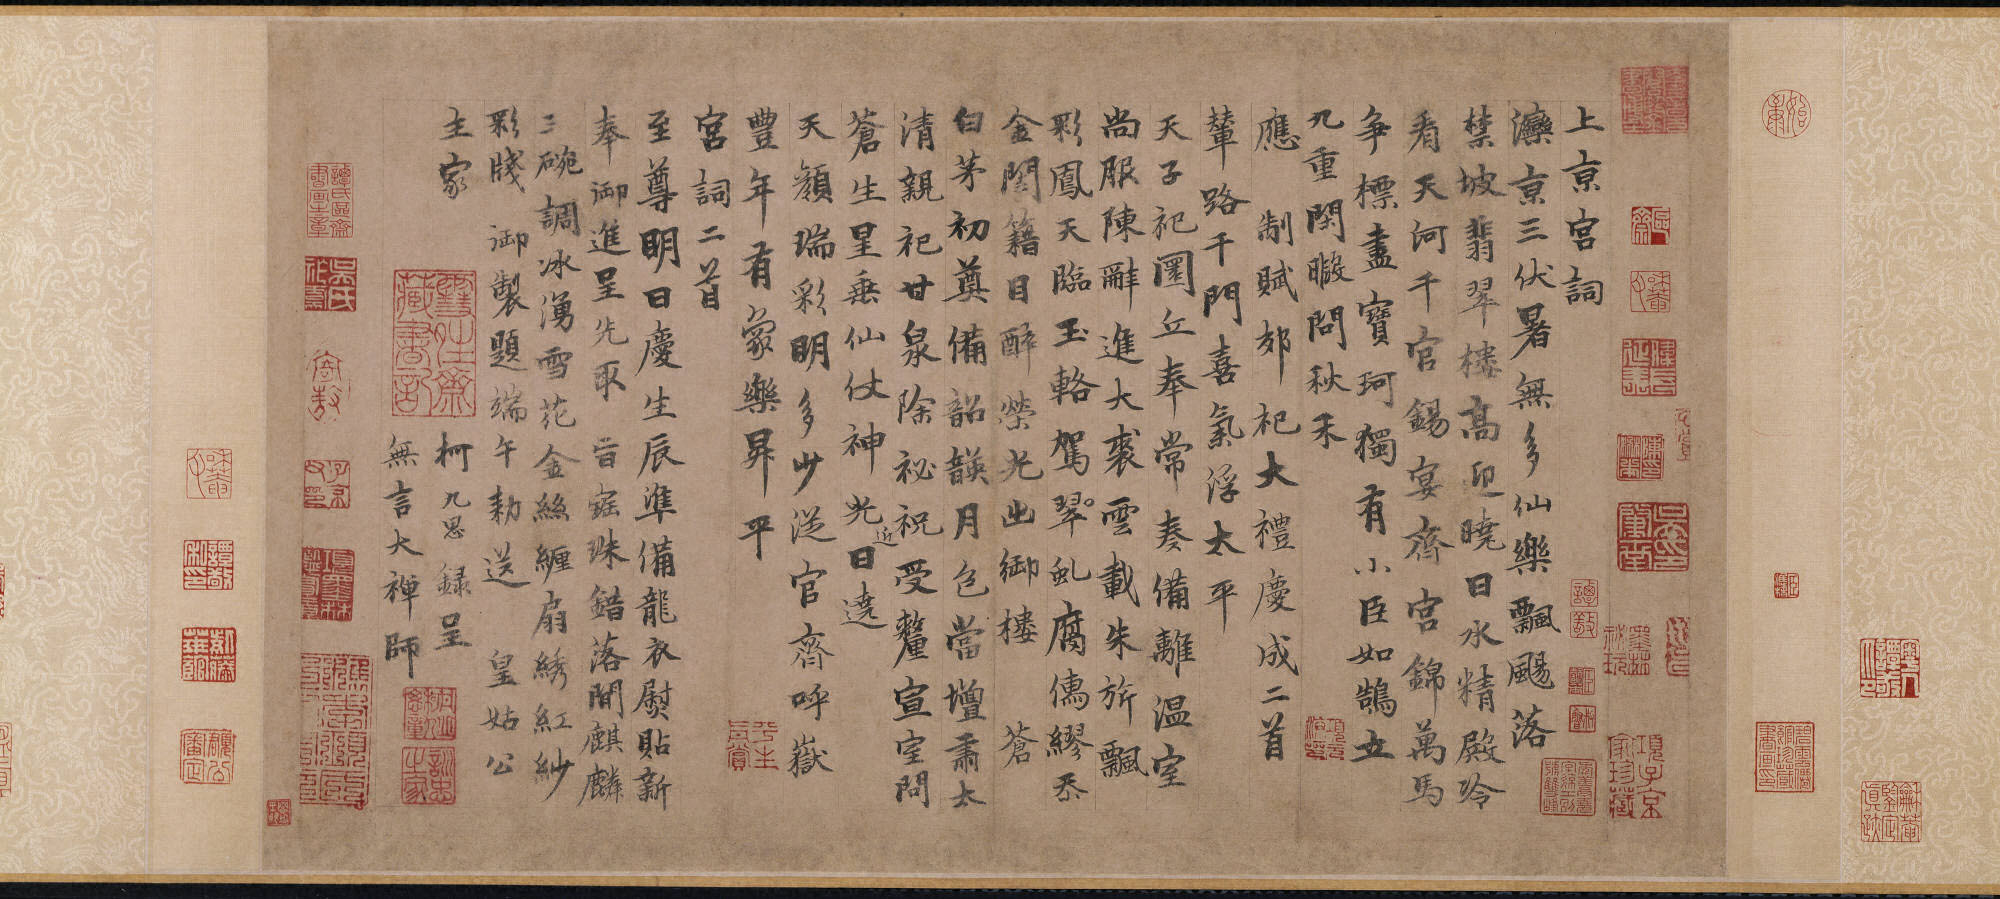 上京宮詞
灤京三伏暑無多仙樂飄颺落
禁坡翡翠樓高迎曉日水精殿冷
看天河千官錫宴齊宮錦萬馬
爭標盡寶珂獨有小臣如鵠立
九重閑暇問秋禾
應 制賦郊祀大禮慶成二首
輦路千門喜氣浮太平
天子祀圜丘奉常奏備離溫室
尚服陳辭進大裘雲載朱旂飄
彩鳳天臨玉輅駕翠虬腐儒繆忝
金閨籍目醉榮光出御樓 蒼
白茅初奠備韶韺月色當壇肅太
清親祀甘泉除祕祝受釐宣室問
蒼生星垂仙仗神光近日遶
天顏瑞彩明多少從官齊呼嶽
豐年有象樂昇平
宮詞二首
至尊明日慶生辰準備龍衣熨貼新
奉 御進呈先取 旨 珠錯落間麒麟
三碗調冰湧雪花金絲纏扇綉紅紗
彩牋 御製題端午勅送 皇姑公
主家
柯九思錄呈
無言大禪師
項子京家珍藏
平生真賞